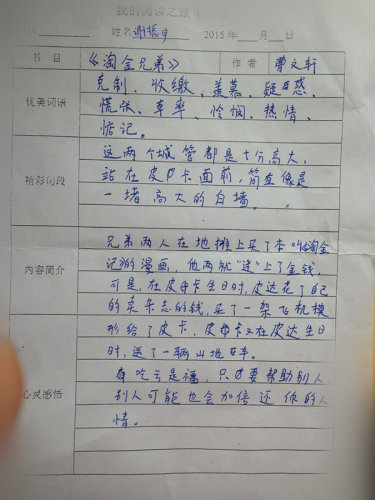 我的阅读之旅（
姓名 谢振宇 2015年 月 日
书目 《淘金兄弟》 作者 曹文轩
优美词语 克制、收缴、羡慕、疑惑、
慌张、草率、怜悯、热情、
惦记。
精彩句段 这两个城管都是十分高大，
站在皮卡面前，简直像是
一堵高大的白墙。
内容简介 兄弟两人在地摊上买了本叫淘金
记的漫画，他两就"迷"上了金钱，
可是，在皮卡生日时，皮达花了自己
的卖杂志的钱，买了一架飞机模
形给了皮卡；皮卡又在皮达生日
时，送了一辆山地车。
心灵感悟 有吃亏是福，只要帮助别人，
别人可能也会加倍还你的人
情。